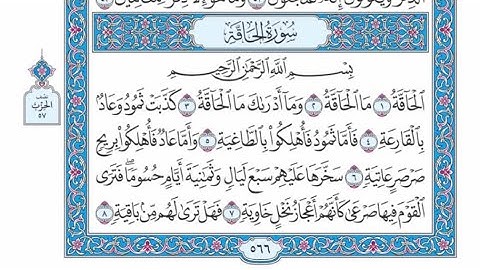 سُورَةُ الحَاقَّةِ
بِسْمِ اللَّهِ الرَّحْمَٰنِ الرَّحِيمِ
الْحَاقَّةُ ١ مَا الْحَاقَّةُ ٢ وَمَا أَدْرَاكَ مَا الْحَاقَّةُ ٣ كَذَّبَتْ ثَمُودُ وَعَادٌ
بِالْقَارِعَةِ ٤ فَأَمَّا ثَمُودُ فَأُهْلِكُوا بِالطَّاغِيَةِ ٥ وَأَمَّا عَادٌ فَأُهْلِكُوا بِرِيحٍ
صَرْصَرٍ عَاتِيَةٍ ٦ سَخَّرَهَا عَلَيْهِمْ سَبْعَ لَيَالٍ وَثَمَٰنِيَةَ أَيَّامٍ حُسُومًا ۖ فَتَرَى
الْقَوْمَ فِيهَا صَرْعَىٰ كَأَنَّهُمْ أَعْجَازُ نَخْلٍ خَاوِيَةٍ ٧ فَهَلْ تَرَىٰ لَهُم مِّنۢ بَاقِيَةٍ ٨
٥٦٦
نصف
الحزب
٥٧